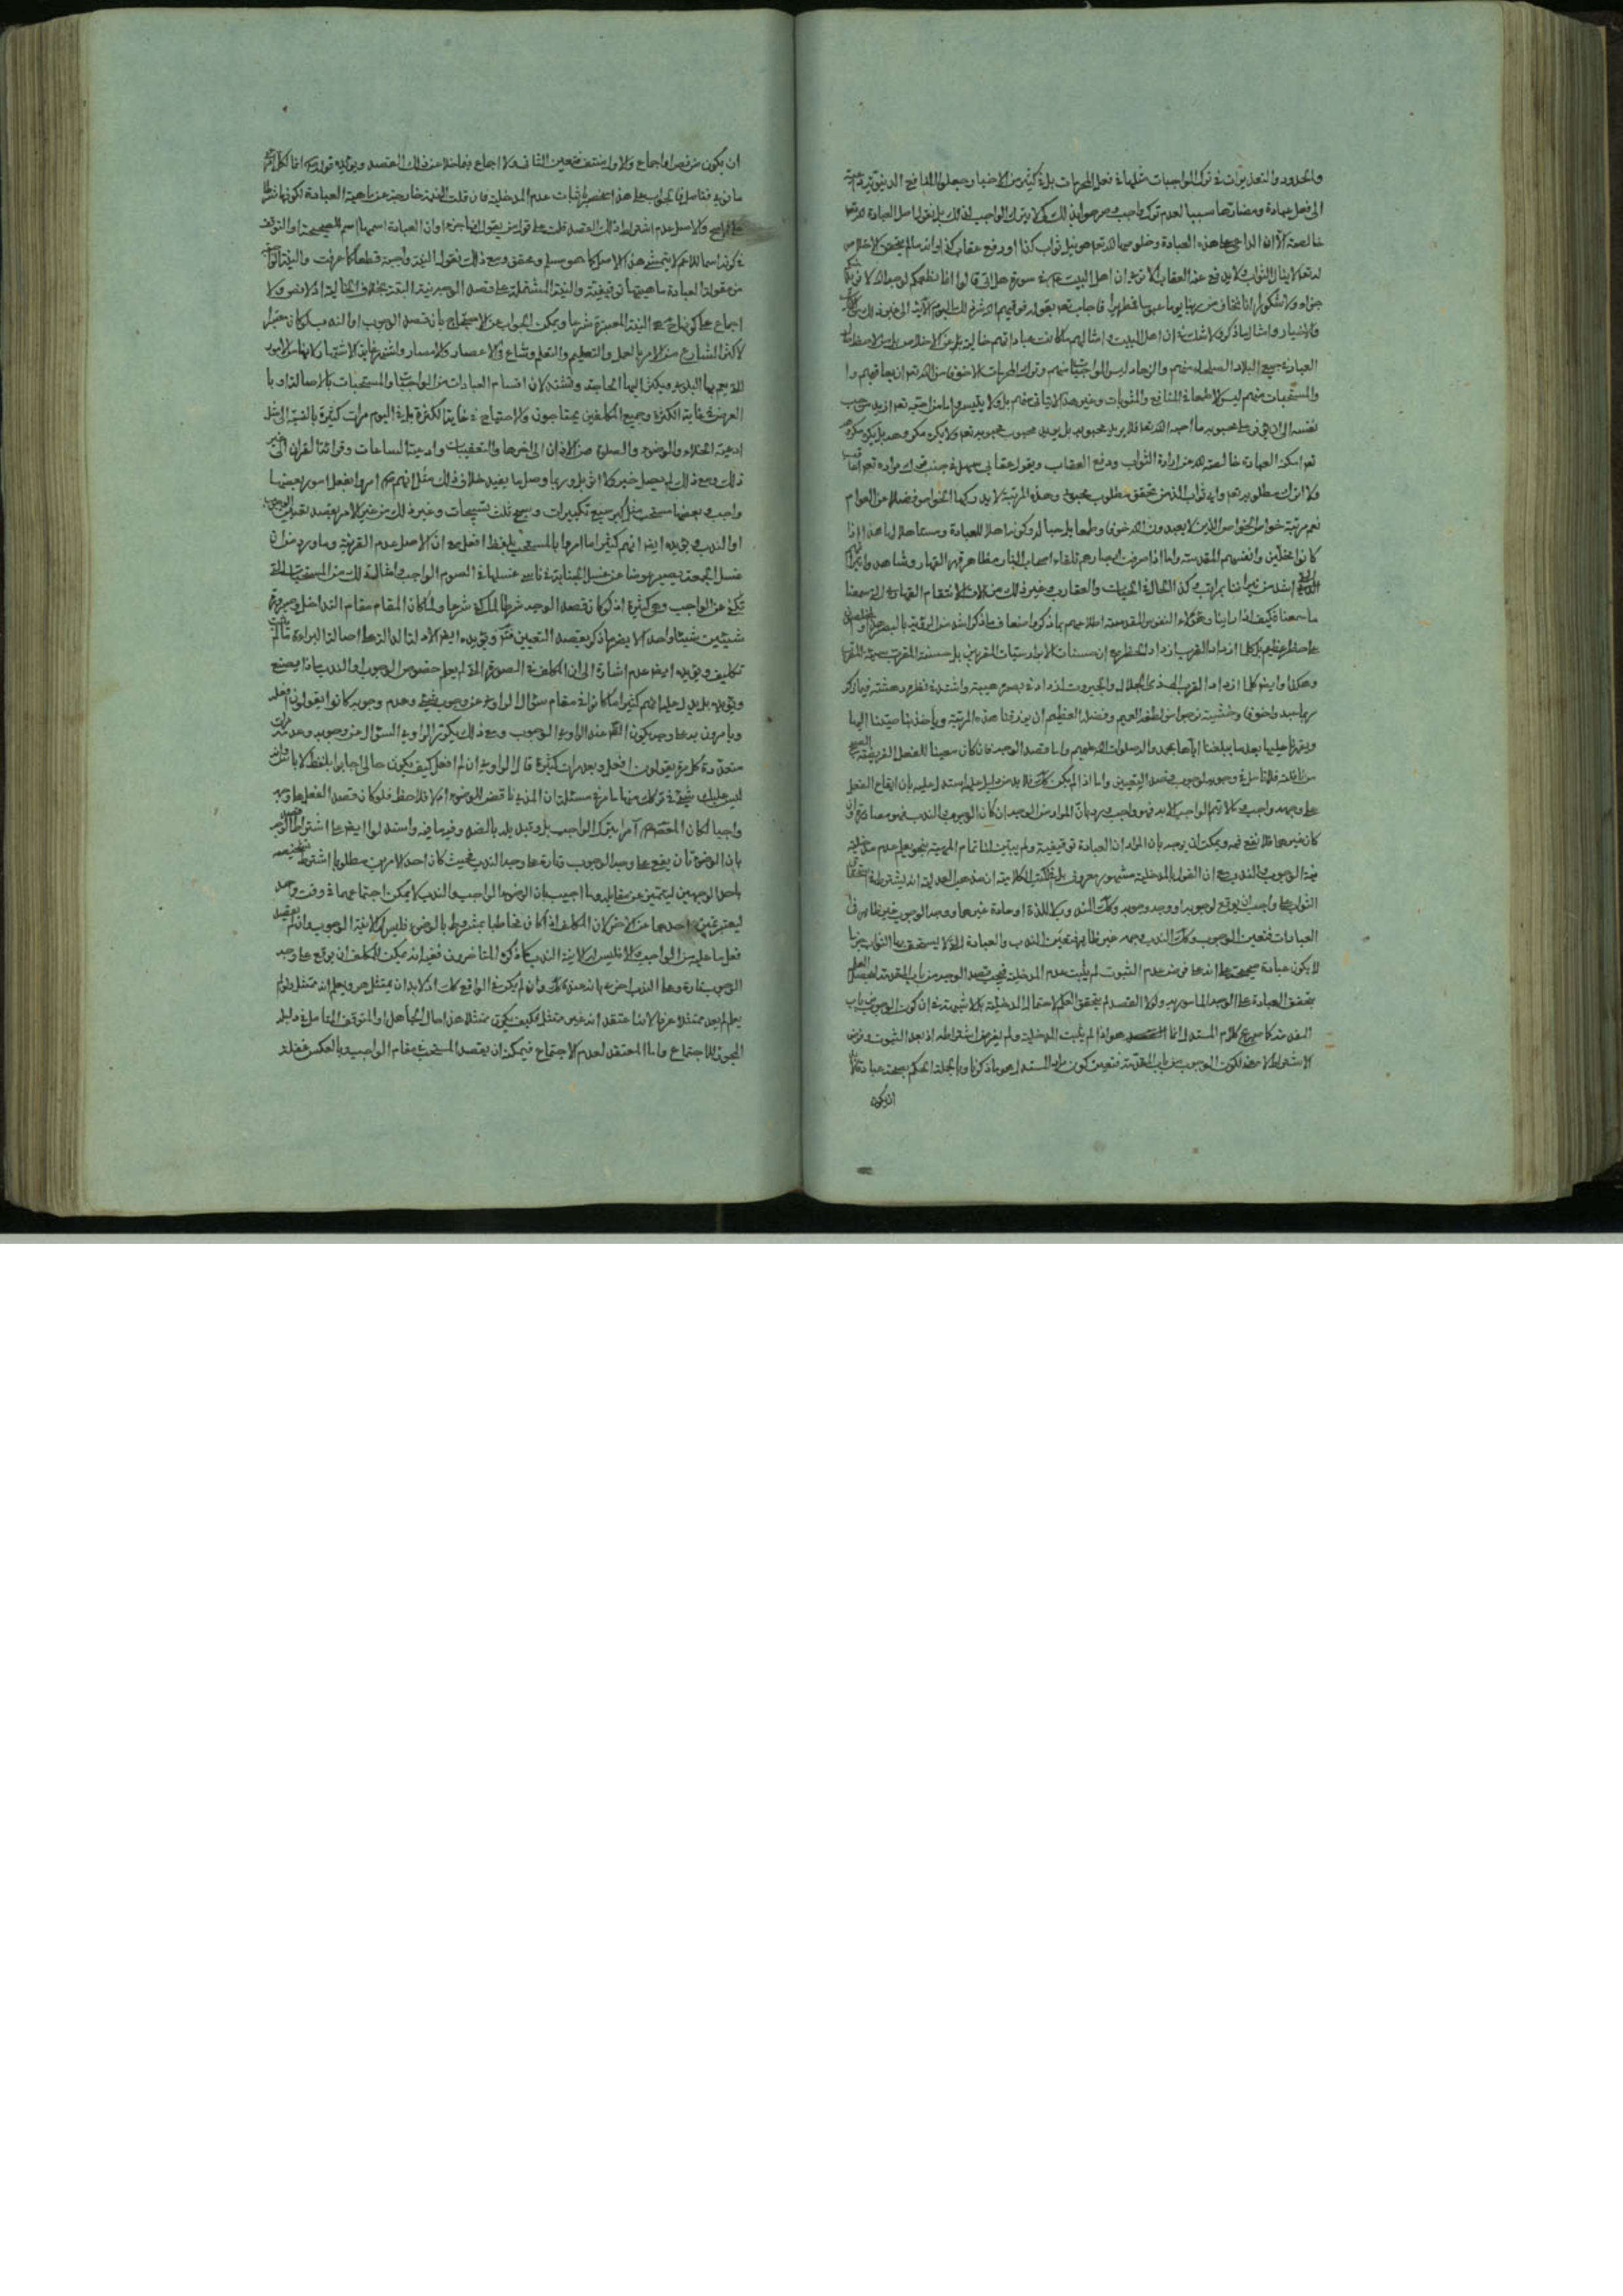 والحدود والتعذيرات في ترك الواجبات مثلها في فعل المحرمات بل في كثير من الاخبار جعلوا المنافع الدنيوية
الى فعل عبادة ومضارها سببا لعدم ترك واجب
خالصة الا ان الداعي على هذه العبادة وخلوصها لله تعالى هو نيل ثواب كذا او رفع عقاب كذا
لله تعالى لا ينال الثواب ولا يدفع عنه العقاب الا ترى ان اهل البيت في سورة هل اتى قالوا انما نطعمكم لوجه الله لا نريد منكم
جزاء ولا شكورا انا نخاف من ربنا يوما عبوسا قمطريرا فاجاب تعالى بقوله فوقيهم الله شر ذلك اليوم الآية الى غير ذلك من
والاخبار وامثال ما ذكر ولا شك في ان اهل البيت وامثالهم ما كانت عباداتهم خالية عن الاخلاص
العبادة جميع البلاد الصلحاء منهم والزهاد ليس الواجبات منهم وترك المحرمات الا خوفا من الله تعالى ان يعاقبهم
والمستحبات منهم ليس الا طمعا في المنافع والمثوبات وغير هذا لا يتأتى منهم بل ولا يتيسر
نعم اسكن العبادة خالصة لله عن ارادة الثواب ودفع العقاب ويقول عقابي سهل في جنب
ولا اترك مطلوبه تعالى وايه ثواب الذ من تحقق مطلوب محبوبي وهذه المرتبة لا يدركها الخواص فضلا عن العوام
نعم مرتبة خواص الخواص الذين لا يعبدون الله خوفا وطمعا بل حبا له وكونه اهلا للعبادة
كانوا مخلّين وانفسهم المقدسة واما اذا صرفت ابصارهم تلقاء اصحاب النار مظاهر قهر القهار وشاهدوا
اشد من نيراننا بمراتب وكذا الحال في الحيات والعقارب وغير ذلك من آلات الانتقام القهارية التي سمعنا
ما سمعنا فكيف اذا رأينا وهؤلاء النفوس المقدسة
كلما ازداد القرب ازداد الخطر فان حسنات الابرار سيئات المقربين بل حسنة المقرب سيئة
وهكذا وايضا كلما ازداد القرب الى ذي الجلال والجبروت ازداد في بصره هيبة واشتد في نظره دهشة
وخشية نرجو من لطفه العميم وفضله العظيم ان يرزقنا هذه المرتبة ويأخذ بناصيتنا اليها
ويقرنا عليها بعد ما يبلغنا اياها بمحمد وآله صلوات الله عليهم واما قصد الوجه فان كان معينا للفعل
من نافلة فلا تأمل في وجوبه لوجوب قصد التعيين واما اذا لم يكن كذلك فلا بد من دليل عليه استدل عليه بان ايقاع الفعل
على وجهه واجب وما لا يتم الواجب الا به فهو واجب ورد بان المراد من الوجه ان كان الوجوب والندب فهو مصادرة وان
كان غيرهما فلا نفع فيه ويمكن ان يوجه بان المراد ان العبادة توقيفية ولم يثبت لنا تمام المهية بنحو يعلم عدم مدخلية
نية الوجوب والندب مع ان القول بالمدخلية مشهور معروف بل في الكتب الكلامية ان مذهب العدلية انه يشترط في استحقاق
الثواب على واجب ان يوقع لوجوبه او وجه وجوبه وكذا المندوب
العبادات فتعين الوجوب وكذا الندب وجهه غير ظاهر فتعين الندب والعبادة التي لا يستحق بها الثواب جزما
لا يكون عبادة صحيحة على انه على فرض عدم الثبوت لم يثبت عدم المدخلية فيجب قصد الوجه من باب المقدمة ليحصل العلم
بتحقق العبادة على الوجه المأمور به ولولا القصد لم يتحقق العلم لاحتمال المدخلية بلا شبهة في ان كون الوجوب من باب
المقدمة كما صرح في كلام المستدل انما هو اذا لم يثبت المدخلية ولم يفرض اشتراطه اذ بعد الثبوت وفرض
الاشتراط لا معنى لكون الوجوب من باب المقدمة فتعين كون مراد المستدل هو ما ذكرنا وبالجملة الحكم بصحة عبادة لا بد
ان يكون
ان يكون من نص او اجماع والاول منتف فتعين الثاني ولا اجماع بما خلا عن ذلك القصد ويؤيده قوله انما لكل امرئ
ما نوى فتأمل فالجواب على هذا انحصر في اثبات عدم المدخلية فان قلت النية خارجة عن ماهية العبادة لكونها شرطا
والاصل عدم اشتراط ذلك القصد قلت على قول من يقول انها جزء او ان العبادة اسم للصحيحة او التوقف
في كونه اسما للاعم لا يتمشى هذا الاصل كما هو مسلم ومحقق ومع ذلك نقول النية واجبة قطعا كما عرفت والنية
من مقولة العبادة ماهيتها توقيفية والنية المشتملة على قصد الوجه نية البتة بخلاف الخالية اذ لا نص ولا
اجماع على كونها هي النية المعتبرة شرعا ويمكن الجواب عن الاحتجاج بان قصد الوجوب او الندب لو كان معتبرا
لاكثر الشارع من الامر بالعمل والتعليم والتعلم وشاع في الاعصار والامصار واشتهر غاية الاشتهار لانها من الامور
التي يعم بها البلوى ويكثر اليها الحاجة وتشتد لان اقسام العبادات من الواجبات والمستحبات بالاصالة او با
العرض في غاية الكثرة وجميع المكلفين يحتاجون والاحتياج في غاية الكثرة بل في اليوم مرات كثيرة بالنسبة الى مثل
ادعية الخلاء والوضوء والصلوة من الاذان الى اخرها والتعقيبات وادعية الساعات وقرائة القران الى غير
ذلك ومع ذلك لم يصل خبر ولا اثر بل وربما وصل ما يفيد خلاف ذلك مثل انهم امروا بفعل امور بعضها
واجب وبعضها مستحب مثل كبر سبع تكبيرات وسبح ثلث تسبيحات وغير ذلك من غير الامر بقصد تعيين الوجوب
او الندب ويؤيده ايضا انهم كثيرا ما امروا بالمستحب بلفظ افعل مع ان الاصل عدم القرينة وما ورد من ان
غسل الجمعة يصير عوضا عن غسل الجنابة في ناسي غسلها في الصوم الواجب وامثال ذلك من المستحبات التي
تكفي عن الواجب وهي كثيرة اذ لو كان قصد الوجه شرطا
شيئين شيئا واحدا لا يضر ما ذكر بقصد التعيين فتأمل ويؤيده ايضا الادلة الدالة على اصالة البراءة
تكليف ويؤيده ايضا عدم اشارة الى ان المكلف في الصورة التي لم يعلم خصوص الوجوب او الندب ماذا يصنع
ويؤيده بل يدل عليه انهم كثيرا ما كانوا في مقام سؤال الراوي عن وجوب شيء وعدم وجوبه كانوا يقولون افعله
ويأمرون به على وجه يكون الظاهر عند الراوي الوجوب ومع ذلك يكرر الراوي السؤال عن وجوبه وعدمه مرات
متعددة كل مرة يقولون افعل وبعد مرات كثيرة قال الراوي ان لم افعل كيف يكون حالي اجابوا بلفظ لا بأس او
ليس عليك شيء في تركك منها ما مر في مسئلة ان المذي ناقض للوضوء ام لا فلاحظ فلو كان قصد الفعل على وجه
واجبا لكان المعصوم آمرا بترك الواجب بل وتبديله بالضد وفيه ما فيه واستدلوا ايضا على اشتراط قصد الوجه
بان الوضوء تارة يقع على وجه الوجوب وتارة على وجه الندب فحيث كان احد الامرين مطلوبا اشترط تخصيصه
باحد الوجهين ليتميز عن مقابله وربما اجيب بان الوضوء الواجب والندب لا يمكن اجتماعهما في وقت واحد
ليعتبر تمييز احدهما عن الاخر لان المكلف اذا كان مخاطبا بمشروط بالوضوء فليس له الا نية الوجوب وان لم يقصد
فعل ما عليه من الواجب والا فليس له الا نية الندب كما ذكره المتاخرون ففيه انه يمكن للمكلف ان يوقع على وجه
الوجوب تارة وعلى الندب اخرى بانه عنده كذلك وان لم يكن في الواقع كذلك اذ لا بد ان يمتثل هو ويعلم انه ممتثل ولو لم
يعلم لم يعد ممتثلا عرفا لانه اعتقد انه غير ممتثل فكيف يكون ممتثلا هذا حال الجاهل او المتوقف المتامل في دليل
المجوز للاجتماع واما المعتقد لعدم الاجتماع فيمكنه ان يقصد المستحب في مقام الواجب وبالعكس غفلة